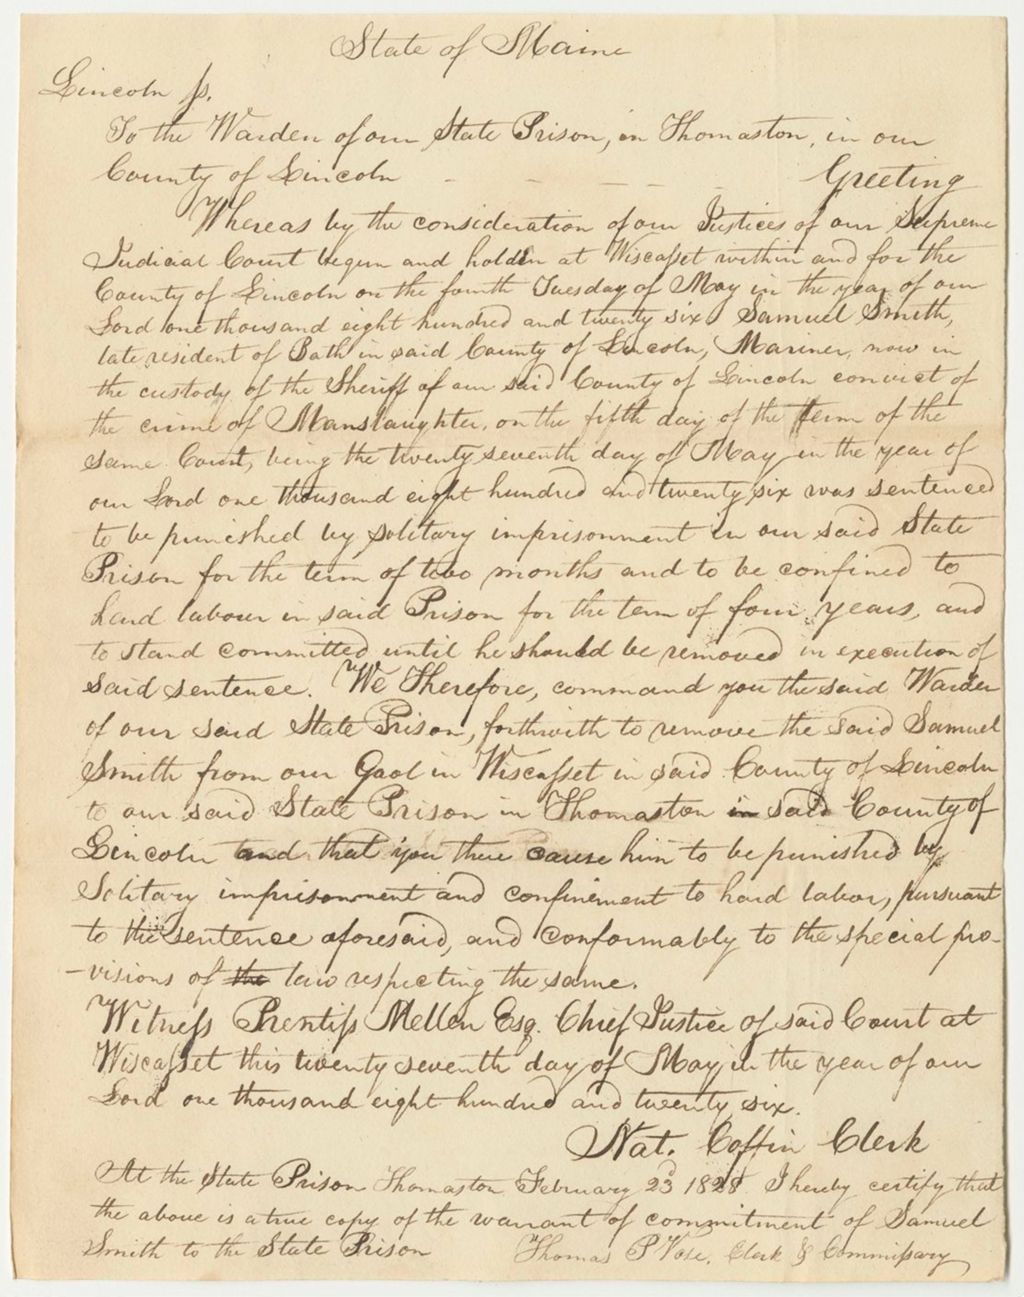 State of Maine
Lincoln ss.
To the Warden of our State Prison, in Thomaston, in our
County of Lincoln - - - - - Greeting
Whereas by the consideration of our Justices of our Supreme
Judicial Court begun and holden at Wiscasset within and for the
County of Lincoln on the fourth Tuesday of May in the year of our
Lord one thousand eight hundred and twenty six, Samuel Smith,
late resident of Bath in said County of Lincoln, Mariner, now in
the custody of the Sheriff of our said County of Lincoln convict of
the crime of Manslaughter, on the fifth day of the term of the
same Court, being the twenty seventh day of May in the year of
our Lord one thousand eight hundred and twenty six was sentenced
to be punished by solitary imprisonment in our said State
Prison for the term of two months and to be confined to
hard labour in said Prison for the term of four years, and
to stand committed until he should be removed in execution of
said sentence. We Therefore, command you the said Warden
of our said State Prison, forthwith to remove the said Samuel
Smith from our Gaol in Wiscasset in said County of Lincoln
to our said State Prison in Thomaston in said County of
Lincoln and that you there cause him to be punished by
Solitary imprisonment and confinement to hard labor, pursuant
to the sentence aforesaid, and conformably to the special pro-
-visions of the law respecting the same.
Witness Prentiss Mellen Esq. Chief Justice of said Court at
Wiscasset this twenty seventh day of May in the year of our
Lord one thousand eight hundred and twenty six.
Nat. Coffin Clerk
At the State Prison Thomaston February 23d 1828 I hereby certify that
the above is a true copy of the warrant of commitment of Samuel
Smith to the State Prison Thomas P Vose, Clerk & Commissary